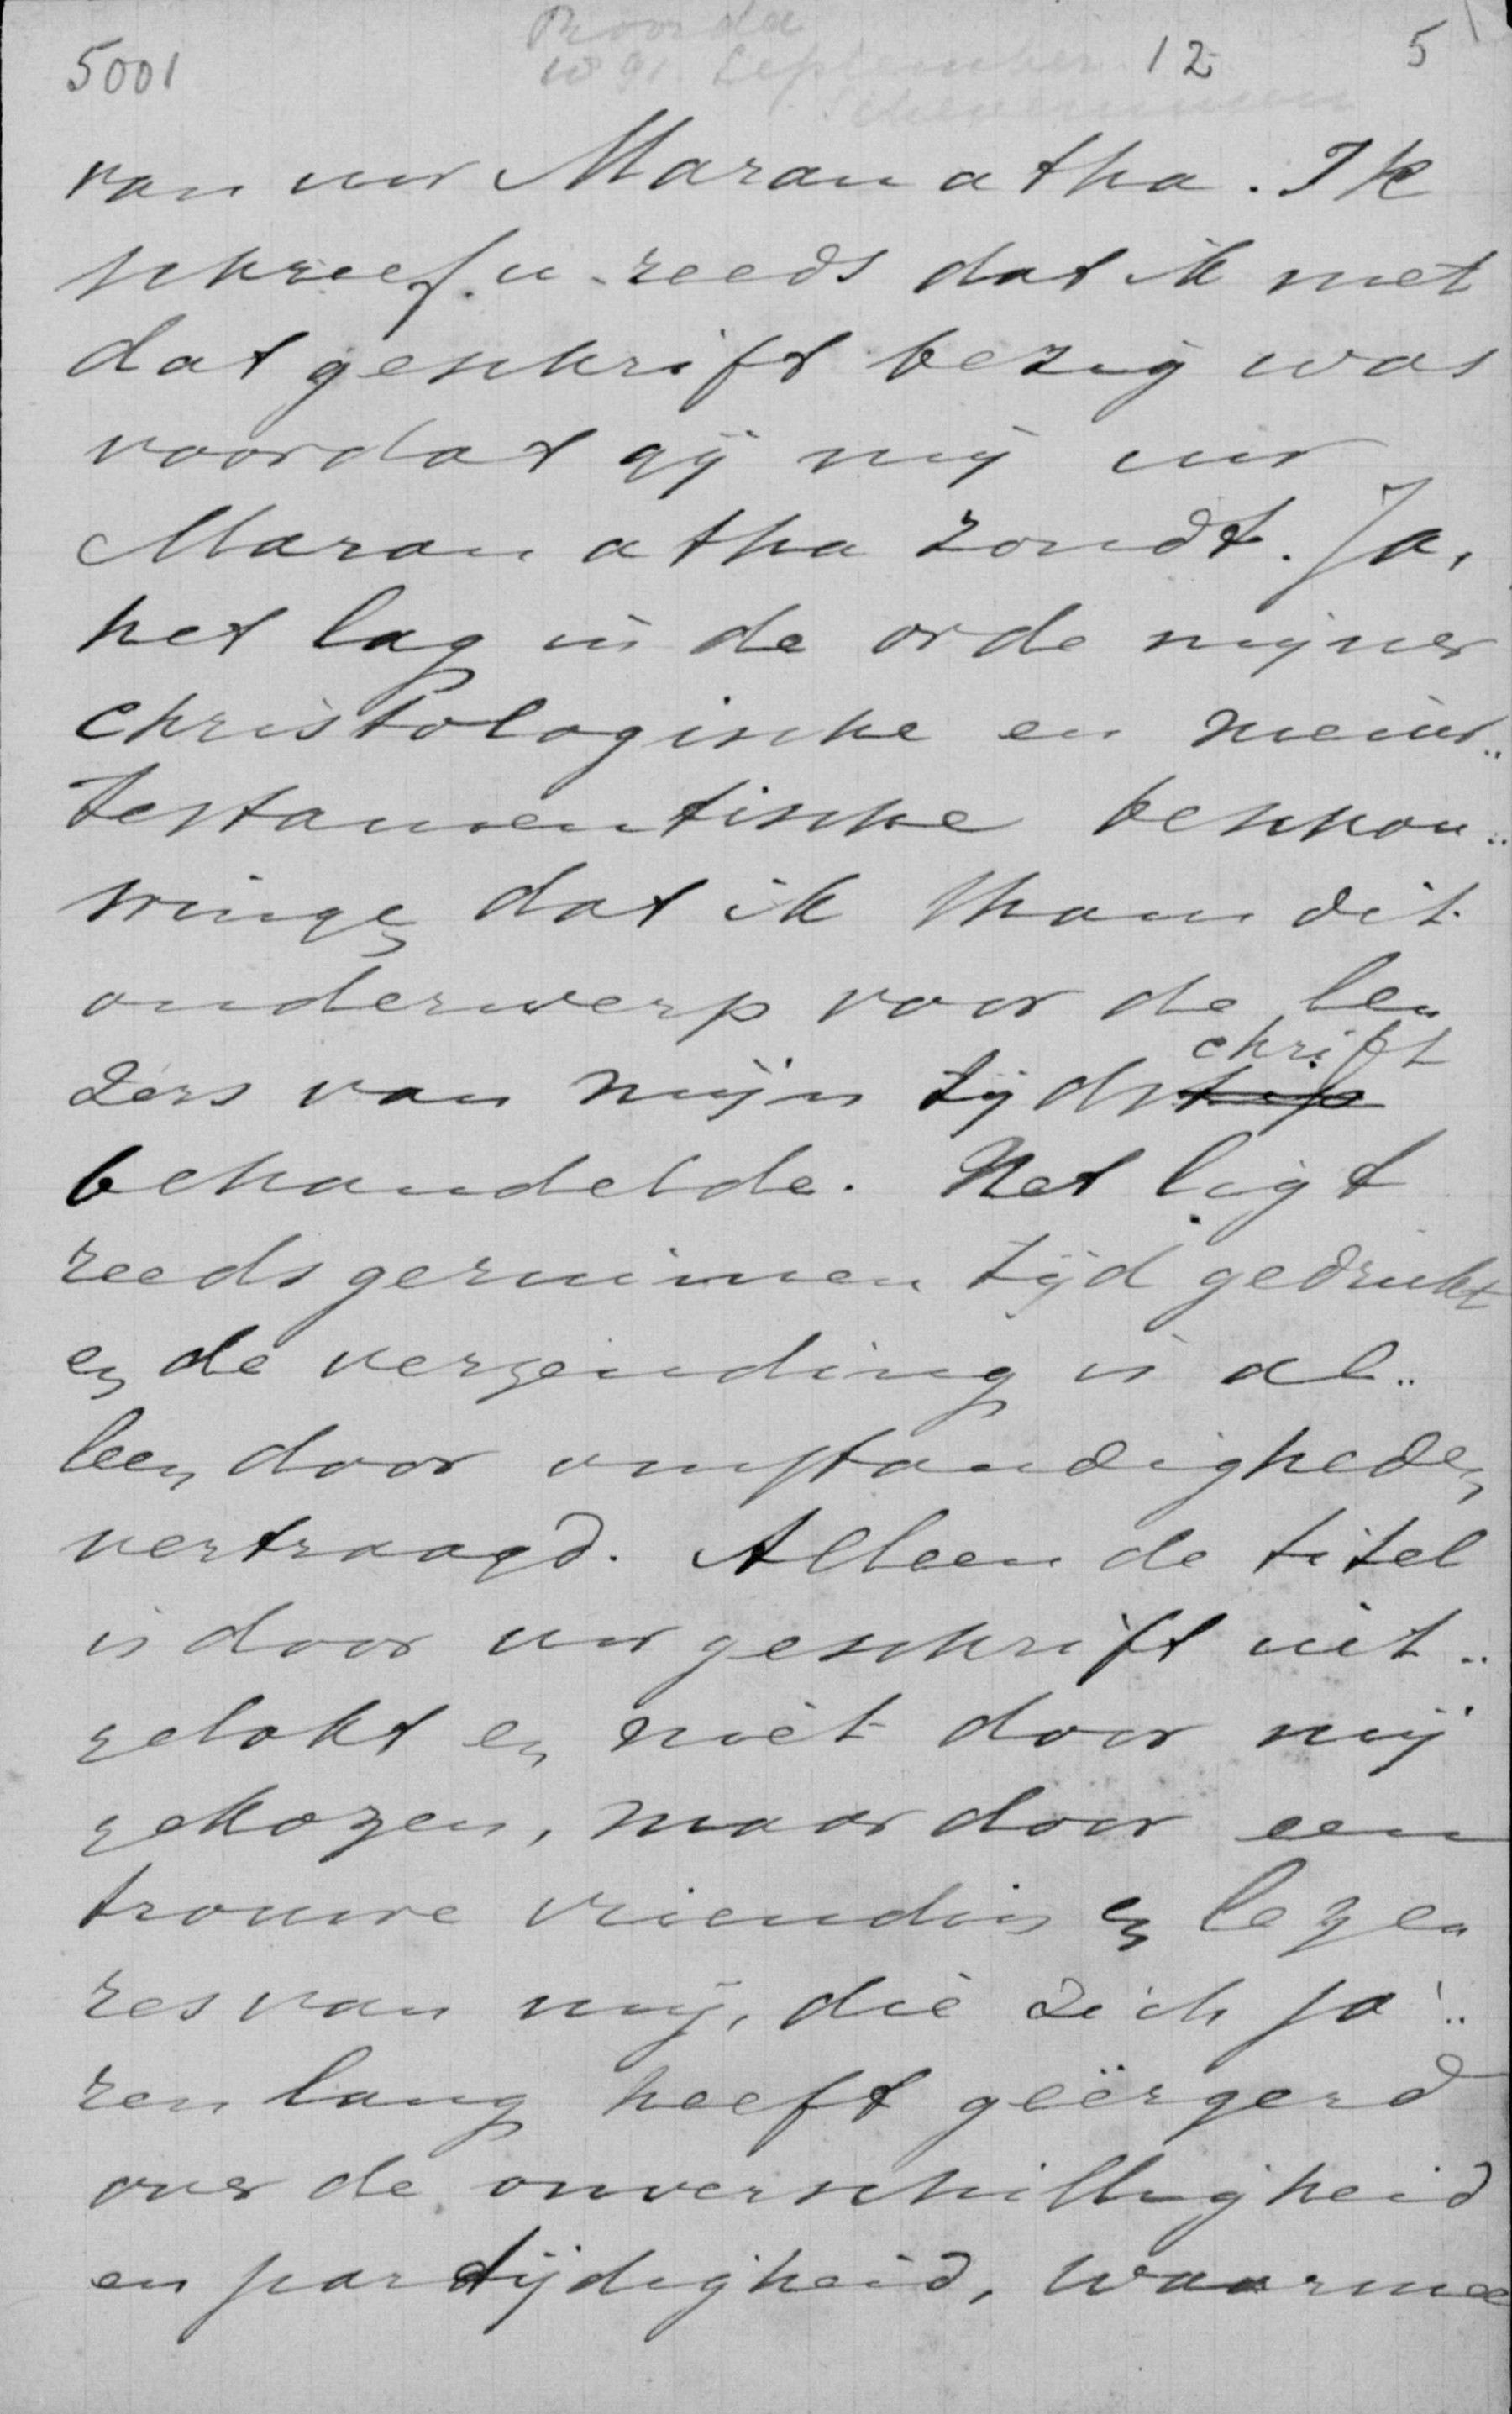 5001 12 5
Roorda
1891 September
Scheveningen
van uw Maranatha. Ik
schreef u reeds dat ik met
dat geschrift bezig was
voordat gij mij uw
Maranatha zondt. Ja,
het lag in de orde mijner
christologische en nieuw..
testamentische beschou..
wingen dat ik thans dit
onderwerp voor de le..
chrift
zers van mijn tijdstip
behandelde. Het ligt
reeds geruimen tijd gedrukt
en de verzending is al..
leen door omstandigheden
vertraagd. Alleen de titel
is door uw geschrift uit..
gelokt en niet door mij
gekozen, maar door een
trouwe vriendin en leze..
res van mij, die zich ja..
ren lang heeft geërgerd
over de onverschilligheid
en partijdigheid, waarmee